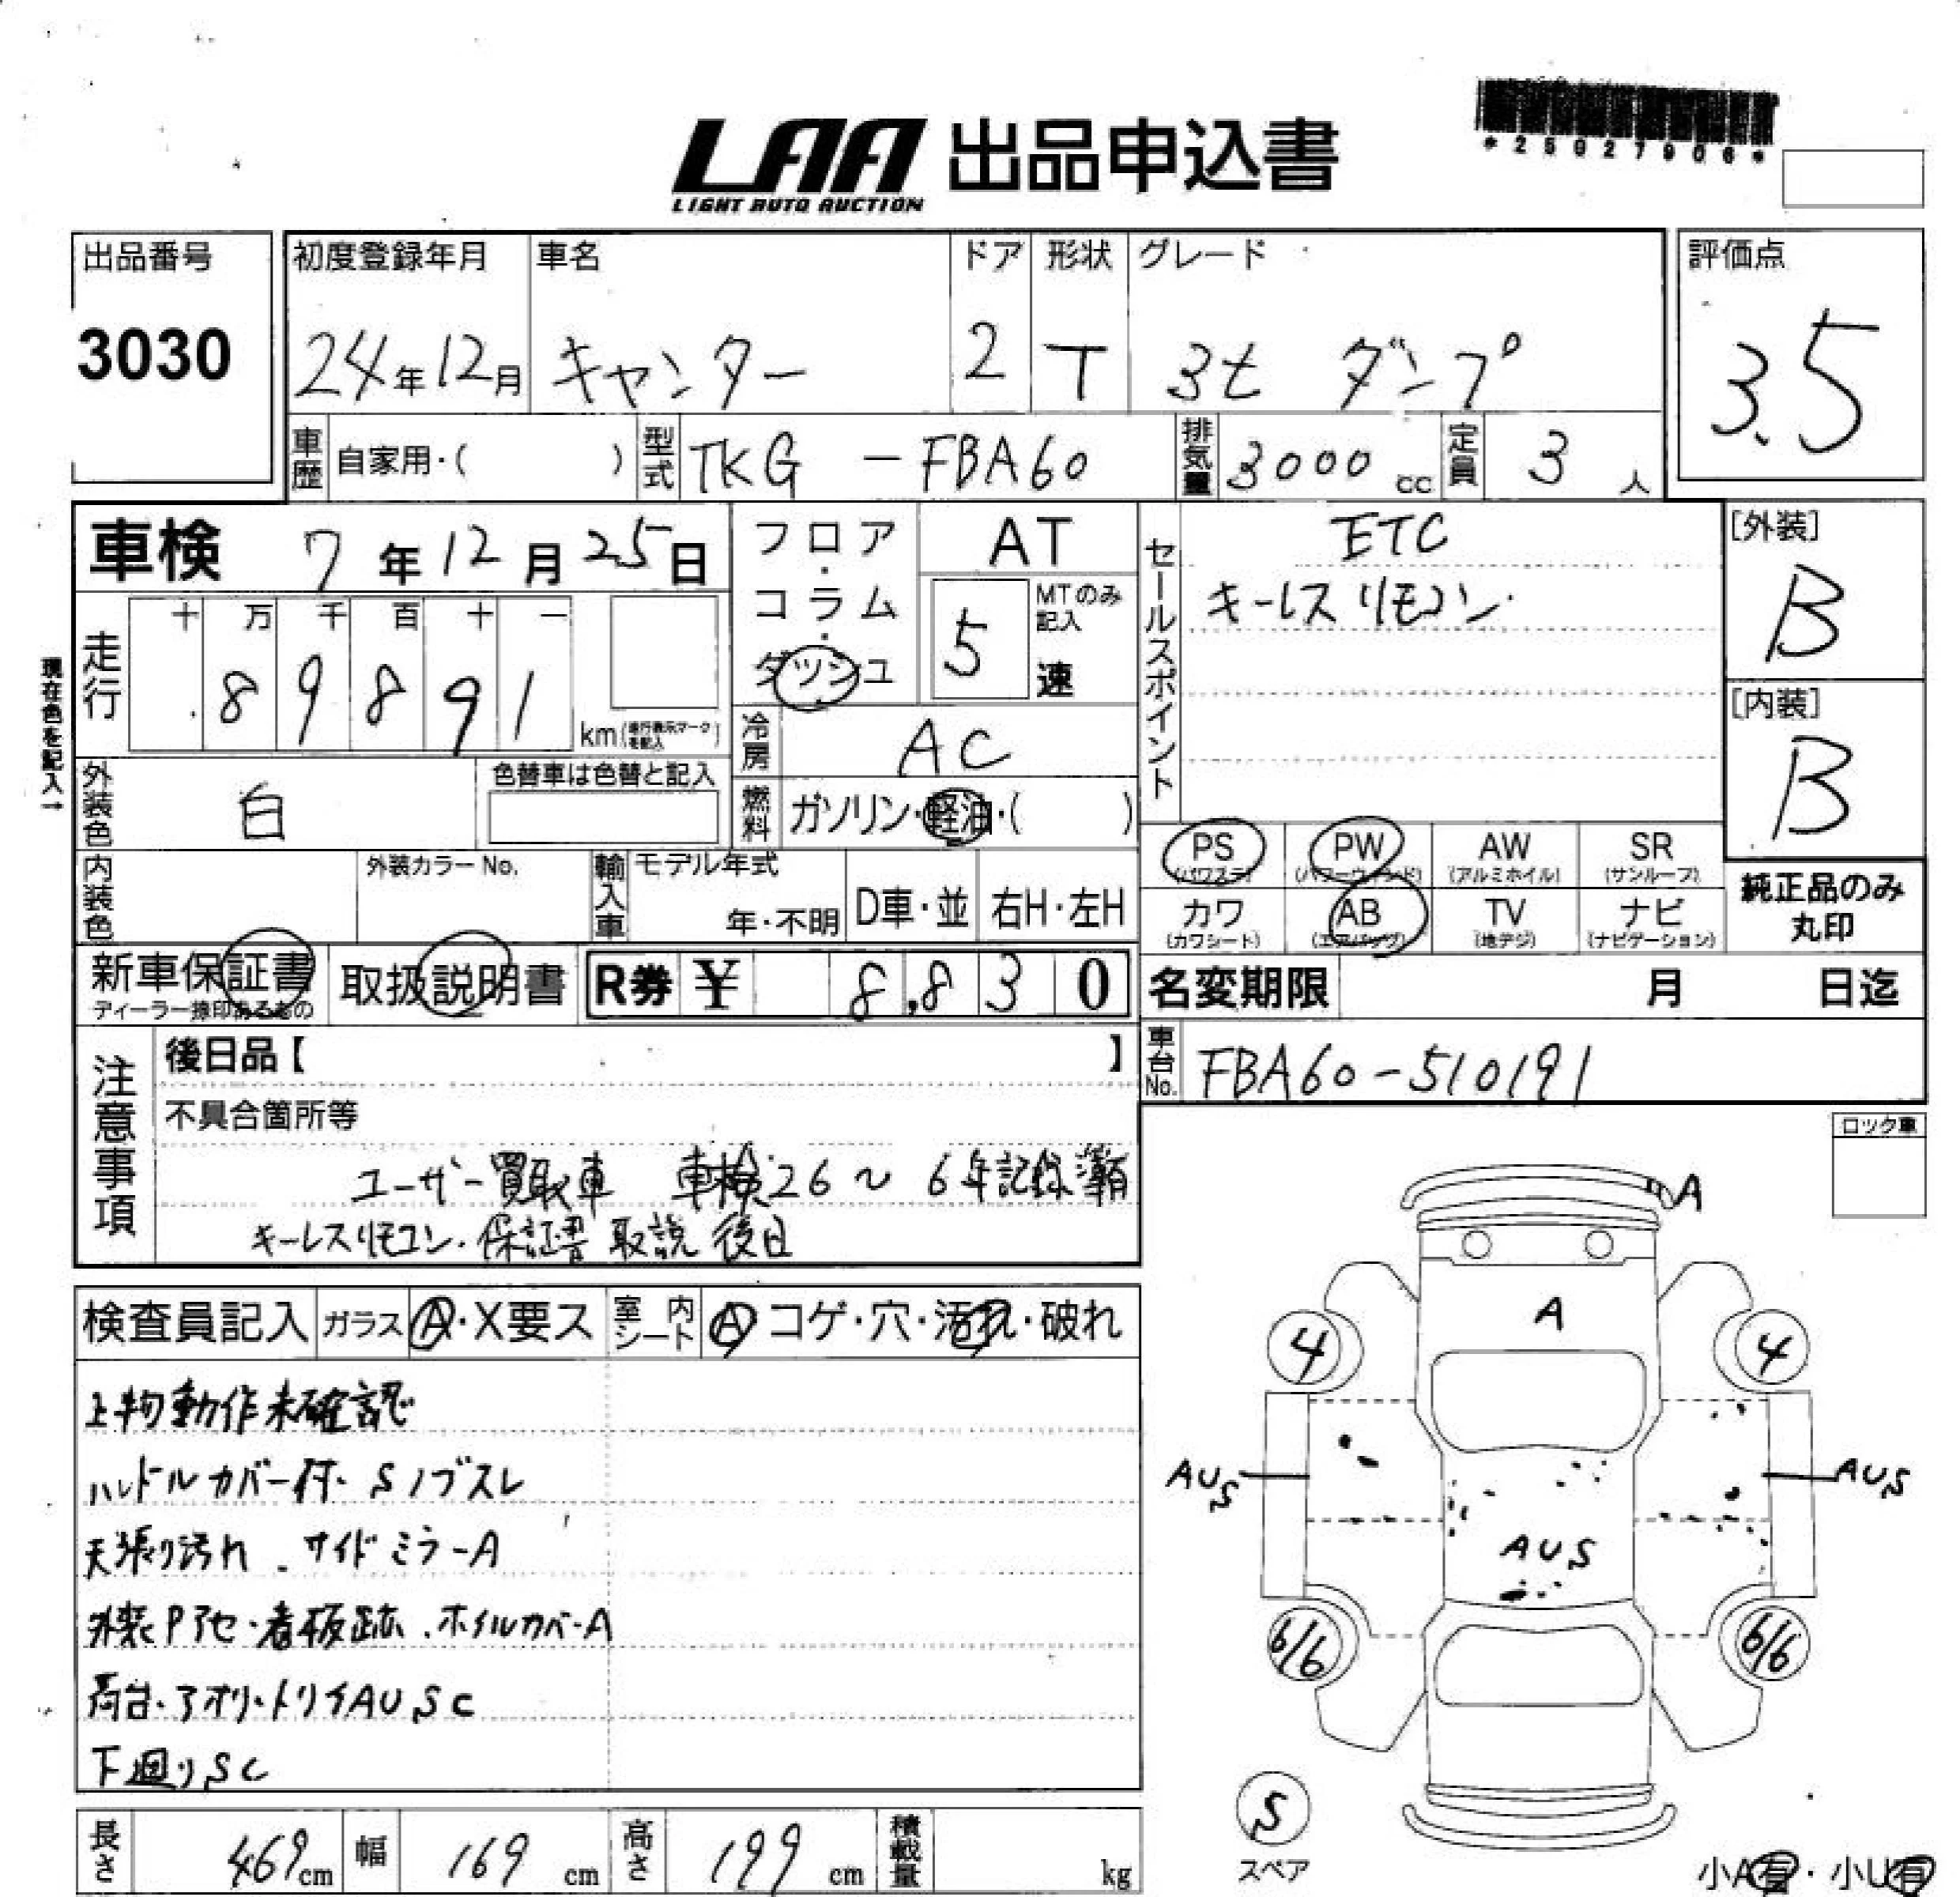 LAA 出品申込書
LIGHT AUTO AUCTION
*25027906*
出品番号
3030
初度登録年月
24年12月
車名
キャンター
ドア
2
形状
T
グレード
3t ダンプ
評価点
3.5
車歴 自家用・( )
型式 TKG -FBA60
排気量 3000 cc
定員 3 人
車検 7年12月25日
フロア・コラム・ダッシュ
AT
5速
MTのみ記入
セールスポイント
ETC
キーレスリモコン.
[外装]
B
[内装]
B
現在色を記入→
走行
十 万 千 百 十 一
89891
km(走行表示マークを記入)
冷房 AC
外装色 白
色替車は色替と記入
燃料 ガソリン・軽油・( )
内装色
外装カラーNo.
輸入車
モデル年式
年・不明
D車・並
右H・左H
PS (パワステ)
PW (パワーウィンド)
AW (アルミホイル)
SR (サンルーフ)
カワ (カワシート)
AB (エアバッグ)
TV (地デジ)
ナビ (ナビゲーション)
純正品のみ丸印
新車保証書
ディーラー捺印あるもの
取扱説明書
R券 ¥ 8,830
名変期限 月 日迄
注意事項
後日品【 】
車台No. FBA60-510191
不具合箇所等
ユーザー買取車 車検26~6年記録簿有
キーレスリモコン.保証書 取説 後日
ロック車
検査員記入
ガラス A・X要ス
室内シート A コゲ・穴・汚れ・破れ
上物動作未確認
ハンドルカバー付. Sノブスレ
天張り汚れ.サイドミラーA
外装Pアセ.看板跡.ホイルカバーA
荷台.アオリ.トリイAUSC
下廻りSC
A
A
4
4
AUS
AUS
AUS
6/6
6/6
S
スペア
小A有・小U有
長さ 469cm
幅 169 cm
高さ 199 cm
積載量 kg